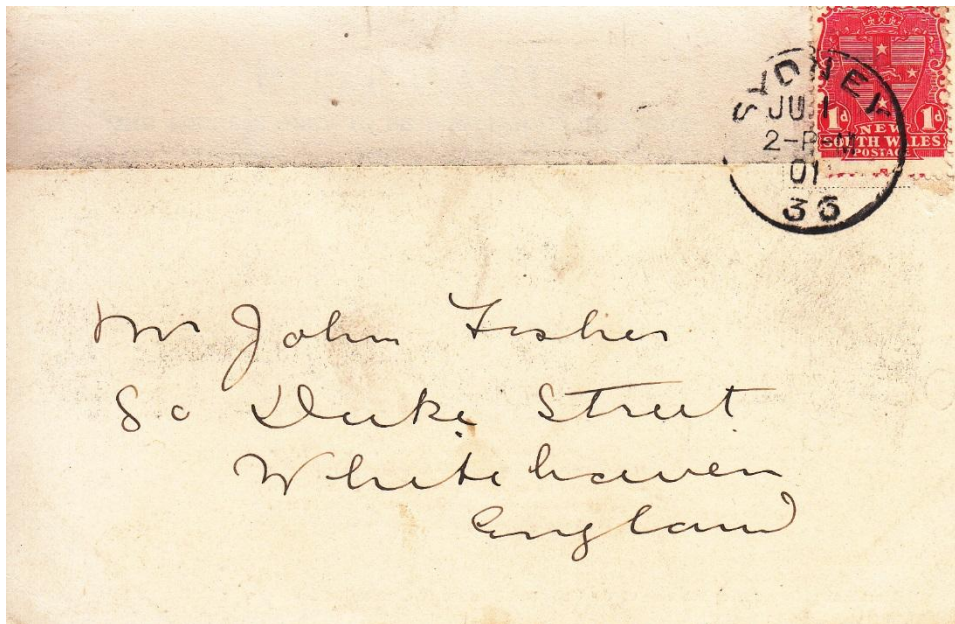 SYDNEY
01
36
1d 1d
NEW
SOUTH WALES
POSTAGE
Mr John Fisher
80 Duke Street
Whitehaven
England